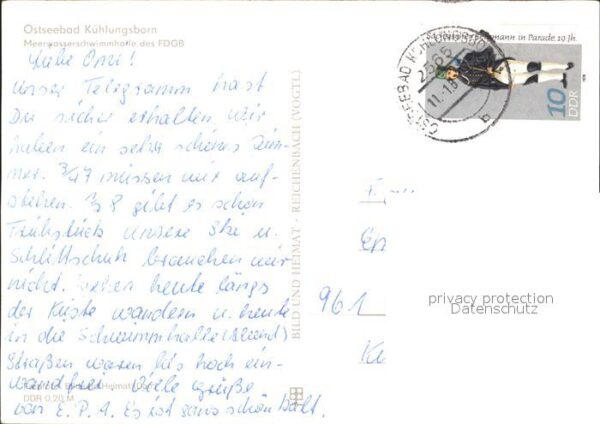 Ostseebad Kühlungsborn
Meerwasserschwimmhalle des FDGB
Liebe Omi!
Unser Telegramm hast
Du sicher erhalten. Wir
haben ein sehr schönes Zim-
mer. 3/4 7 müssen wir auf-
stehen. 1/2 8 gibt es schon
Frühstück unsere Ski u.
Schlittschuh brauchen wir
nicht. heute längs
der Küste wandern u. heute
in die Schwimmhalle
Straßen waren bis hoch ein-
wandfrei. Viele Grüße
von E. P. A. Es ist ganz schön kalt.
DDR 0,20 M
BILD UND HEIMAT · REICHENBACH (VOGTL)
mann in Parade 19. Jh.
10 DDR
OSTSEEBAD KÜHLUNGSBORN
2565
11.-1.
961
privacy protection
Datenschutz